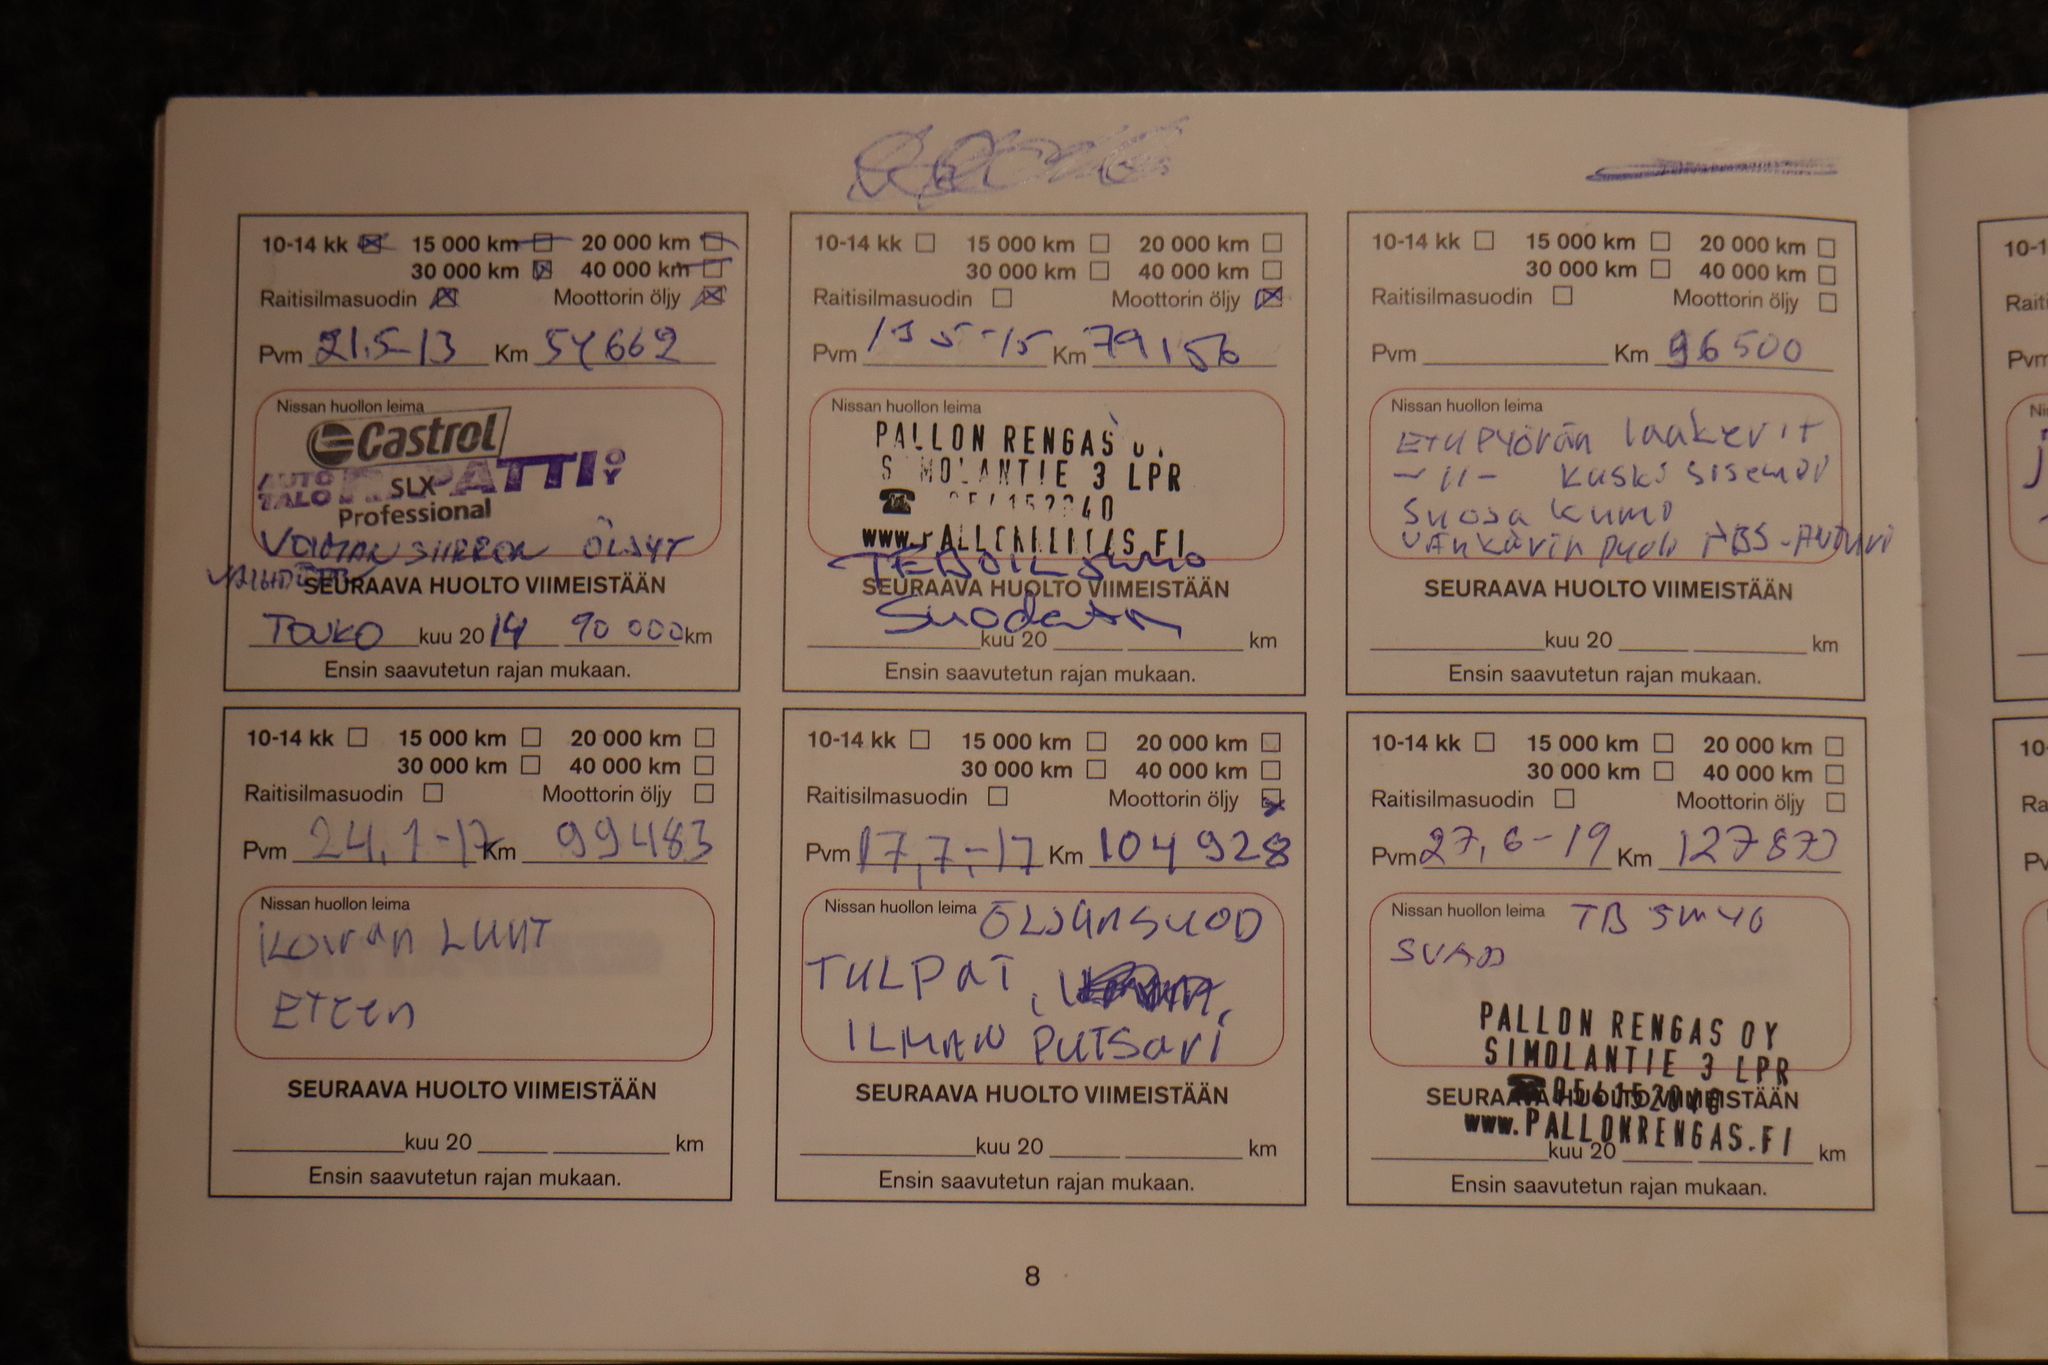 10-14 kk 15 000 km 20 000 km
30 000 km 40 000 km
Raitisilmasuodin Moottorin öljy
Pvm 21.5-13 Km 54662
Nissan huollon leima
Castrol
AUTO TALO PATTI OY
SLX
Professional
VOIMANSIIRRON ÖLJYT
SEURAAVA HUOLTO VIIMEISTÄÄN
TOUKO kuu 2014 90 000 km
Ensin saavutetun rajan mukaan.
10-14 kk 15 000 km 20 000 km
30 000 km 40 000 km
Raitisilmasuodin Moottorin öljy
Pvm 13 5-15 Km 79156
Nissan huollon leima
PALLON RENGAS
SIMOLANTIE 3 LPR
www.
SUODATIN
SEURAAVA HUOLTO VIIMEISTÄÄN
kuu 20 km
Ensin saavutetun rajan mukaan.
10-14 kk 15 000 km 20 000 km
30 000 km 40 000 km
Raitisilmasuodin Moottorin öljy
Pvm Km 96500
Nissan huollon leima
ETUPYÖRÄN laakerit
-11-
Suoja kumi
vänkärin puoli ABS-Anturi
SEURAAVA HUOLTO VIIMEISTÄÄN
kuu 20 km
Ensin saavutetun rajan mukaan.
10-14 kk 15 000 km 20 000 km
30 000 km 40 000 km
Raitisilmasuodin Moottorin öljy
Pvm 24,1-17 Km 99483
Nissan huollon leima
Koiran LUUT
ETeen
SEURAAVA HUOLTO VIIMEISTÄÄN
kuu 20 km
Ensin saavutetun rajan mukaan.
10-14 kk 15 000 km 20 000 km
30 000 km 40 000 km
Raitisilmasuodin Moottorin öljy
Pvm 17,7,-17 Km 104 928
Nissan huollon leima ÖLJYNSUOD
TULPAT,
ILMAN PUTSARI
SEURAAVA HUOLTO VIIMEISTÄÄN
kuu 20 km
Ensin saavutetun rajan mukaan.
10-14 kk 15 000 km 20 000 km
30 000 km 40 000 km
Raitisilmasuodin Moottorin öljy
Pvm 27,6-19 Km 127870
Nissan huollon leima TB 5W40
PALLON RENGAS OY
SIMOLANTIE 3 LPR
SEURAAVA HUOLTO VIIMEISTÄÄN
www.PALLONRENGAS.FI
kuu 20 km
Ensin saavutetun rajan mukaan.
8